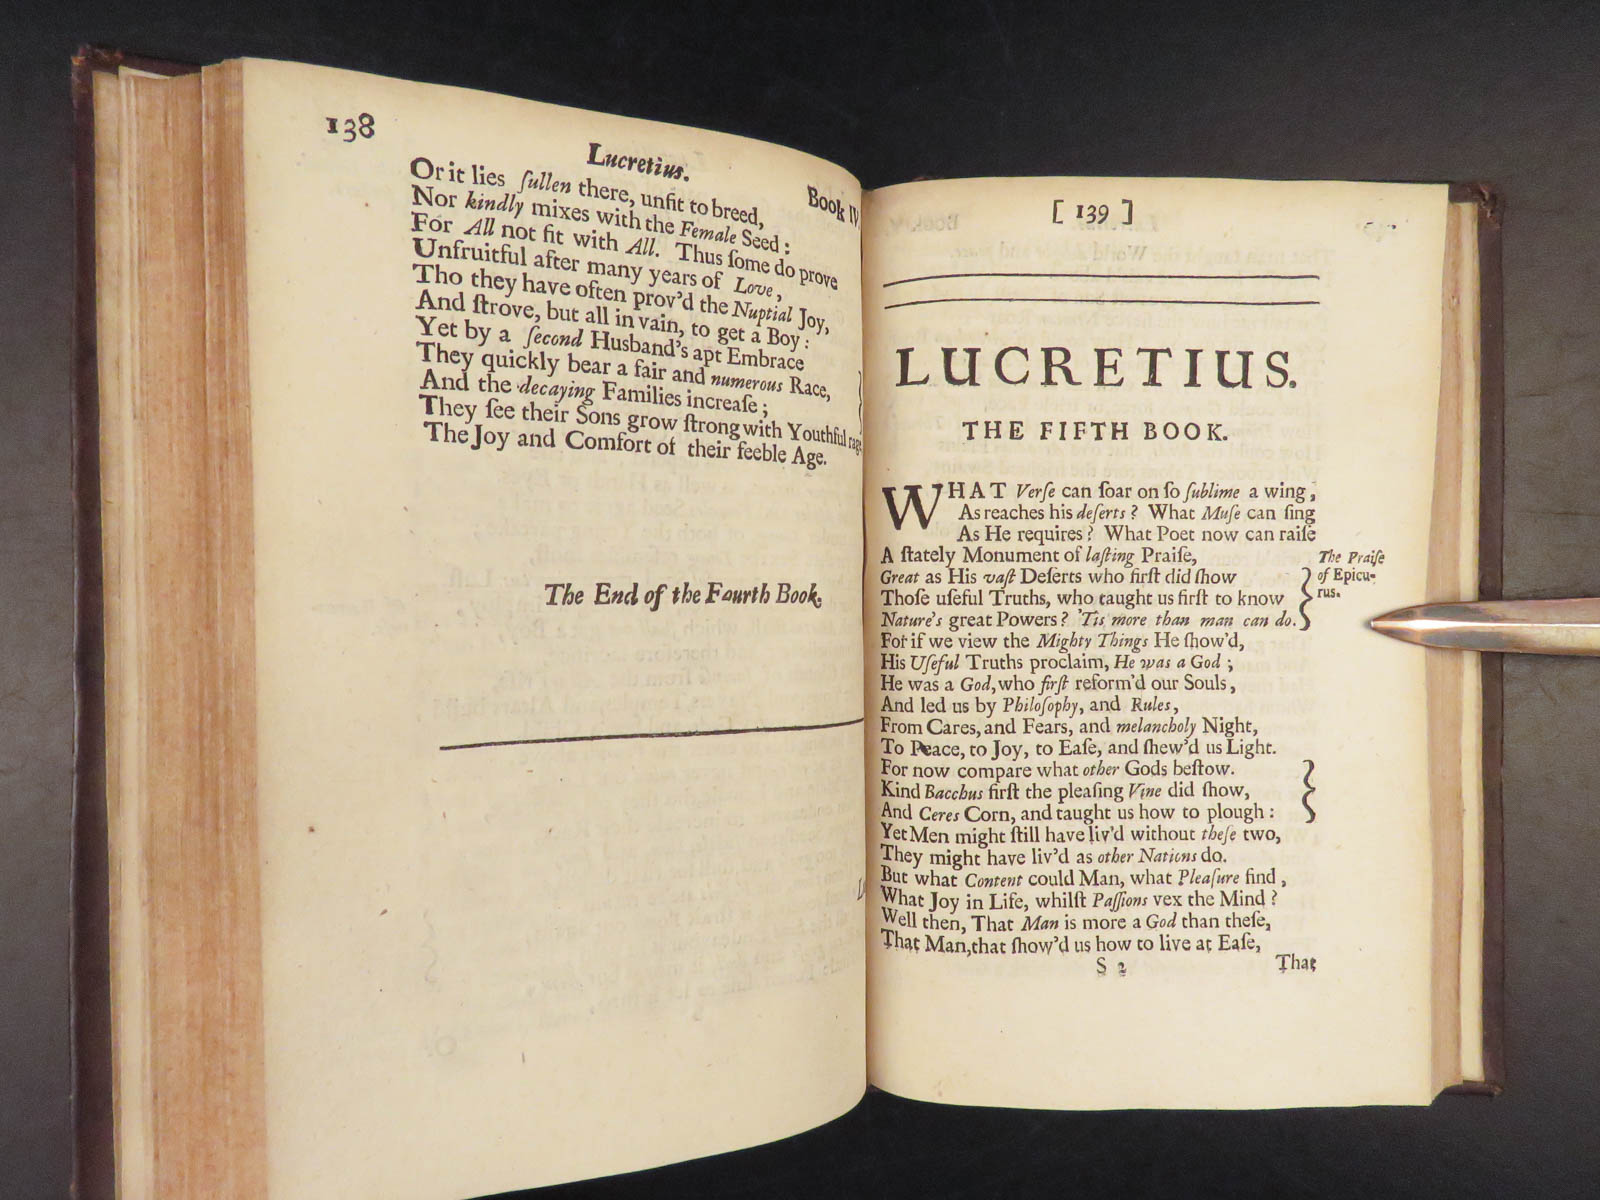 138
Lucretius.
Book IV
Or it lies ſullen there, unfit to breed,
Nor kindly mixes with the Female Seed:
For All not fit with All. Thus ſome do prove
Unfruitful after many years of Love,
Tho they have often prov'd the Nuptial Joy,
And ſtrove, but all in vain, to get a Boy:
Yet by a ſecond Husband's apt Embrace
They quickly bear a fair and numerous Race,
And the decaying Families increaſe;
They ſee their Sons grow ſtrong with Youthful rage
The Joy and Comfort of their feeble Age.
The End of the Fourth Book.
[ 139 ]
LUCRETIUS.
THE FIFTH BOOK.
WHAT Verſe can ſoar on ſo ſublime a wing,
As reaches his deſerts? What Muſe can ſing
As He requires? What Poet now can raiſe
A ſtately Monument of laſting Praiſe,
Great as His vaſt Deſerts who firſt did ſhow
Thoſe uſeful Truths, who taught us firſt to know
Nature's great Powers? 'Tis more than man can do.
The Praiſe
of Epicu-
rus.
For if we view the Mighty Things He ſhow'd,
His Uſeful Truths proclaim, He was a God;
He was a God, who firſt reform'd our Souls,
And led us by Philoſophy, and Rules,
From Cares, and Fears, and melancholy Night,
To Peace, to Joy, to Eaſe, and ſhew'd us Light.
For now compare what other Gods beſtow.
Kind Bacchus firſt the pleaſing Vine did ſhow,
And Ceres Corn, and taught us how to plough:
Yet Men might ſtill have liv'd without theſe two,
They might have liv'd as other Nations do.
But what Content could Man, what Pleaſure find,
What Joy in Life, whilſt Paſſions vex the Mind?
Well then, That Man is more a God than theſe,
That Man, that ſhow'd us how to live at Eaſe,
S 2
That